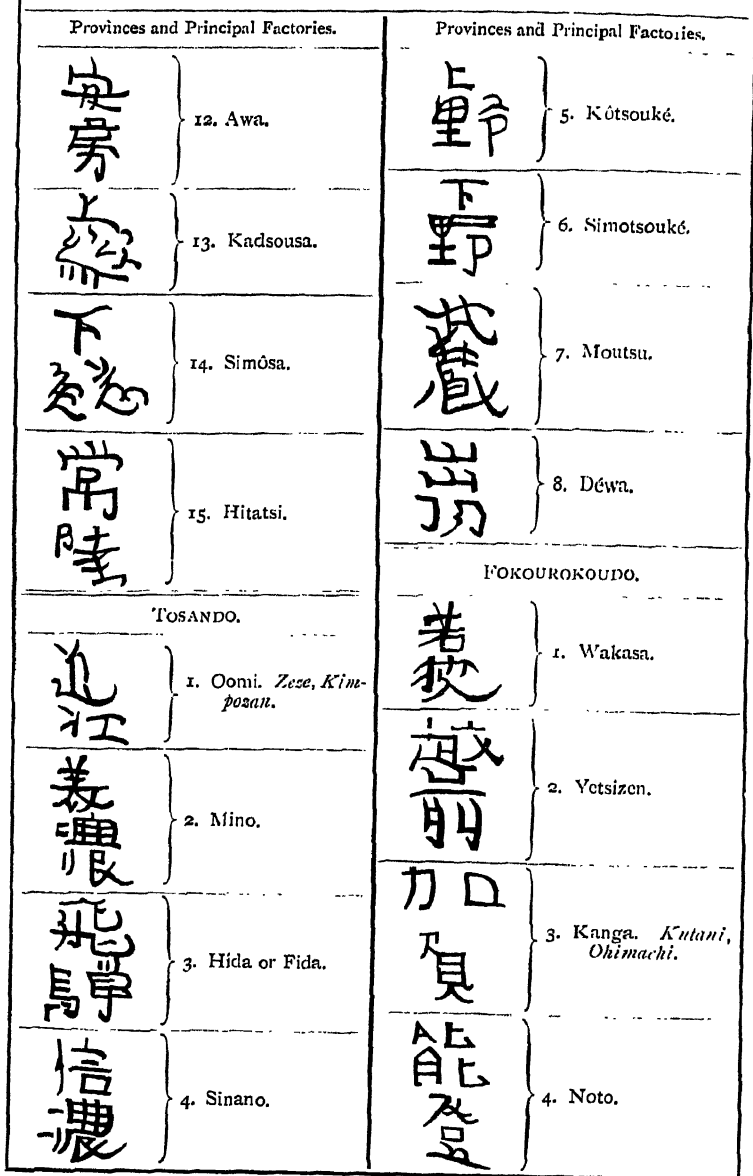 Provinces and Principal Factories.
安
房
12. Awa.
上
総
13. Kadsousa.
下
総
14. Simôsa.
常
陸
15. Hitatsi.
TOSANDO.
近
江
1. Oomi. Zeze, Kim-
pozan.
美
濃
2. Mino.
飛
騨
3. Hida or Fida.
信
濃
4. Sinano.
Provinces and Principal Factories.
上
野
5. Kôtsouké.
下
野
6. Simotsouké.
7. Moutsu.
出
羽
8. Déwa.
FOKOUROKOUDO.
若
狭
1. Wakasa.
越
前
2. Yetsizen.
加
賀
3. Kanga. Kutani,
Ohimachi.
能
登
4. Noto.